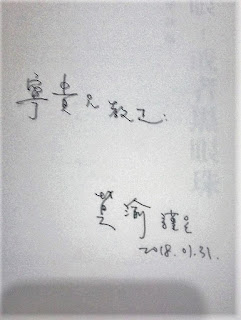 寧貴兄教正:
莫渝 謹呈
2018.01.31.